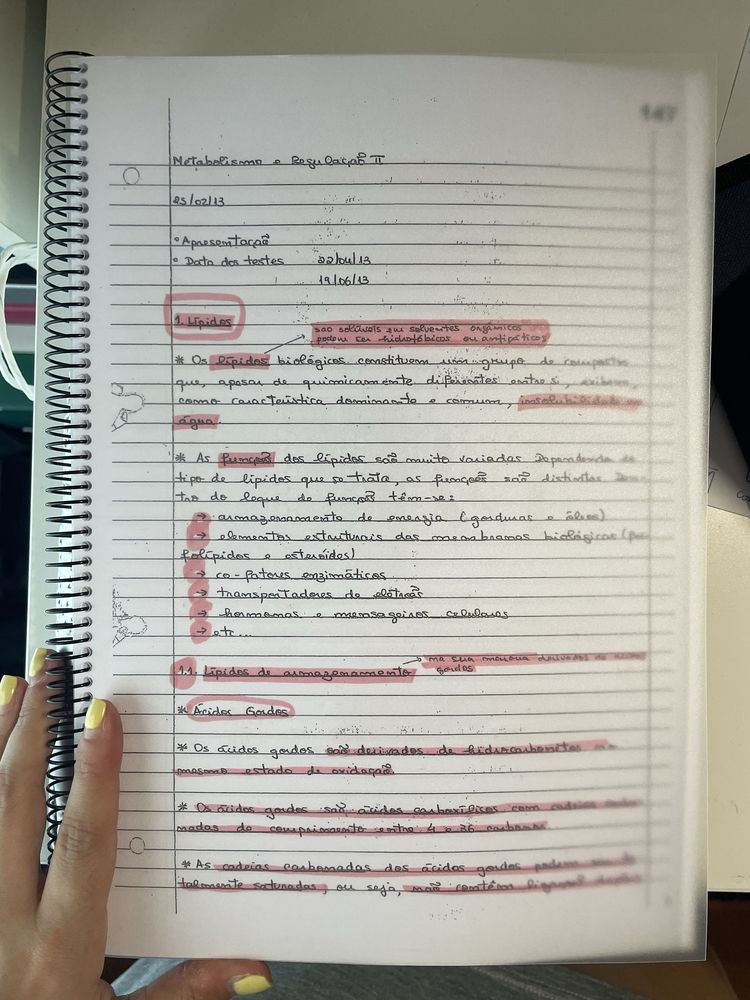 147
Metabolismo e Regulação II
25/02/13
° Apresentação
° Data dos testes 22/04/13
19/06/13
1. Lípidos
são solúveis em solventes orgânicos
podem ser hidrofóbicos ou antipáticos
* Os lípidos biológicos constituem um grupo de compostos
que, apesar de quimicamente diferentes entre si, exibem,
como característica dominante e comum, insolubilidade em
água.
* As funções dos lípidos são muito variadas Dependendo do
tipo de lípidos que se trata, as funções são distintas. Den-
tro do leque de funções têm-se:
→ armazenamento de energia (gorduras e óleos)
→ elementos estruturais das membranas biológicas (
folípidos e esteróides)
→ co-fatores enzimáticos
→ transportadores de eletrões
→ hormonas e mensageiros celulares
→ etc...
1.1. Lípidos de armazenamento → na sua maioria derivados de ácidos
gordos
* Ácidos Gordos
* Os ácidos gordos são derivados de hidrocarbonetos no
mesmo estado de oxidação.
* Os ácidos gordos são ácidos carboxílicos com cadeias
nadas de comprimento entre 4 e 36 carbonos.
* As cadeias carbonadas dos ácidos gordos podem ser to
talmente saturadas, ou seja, não contêm ligações duplas